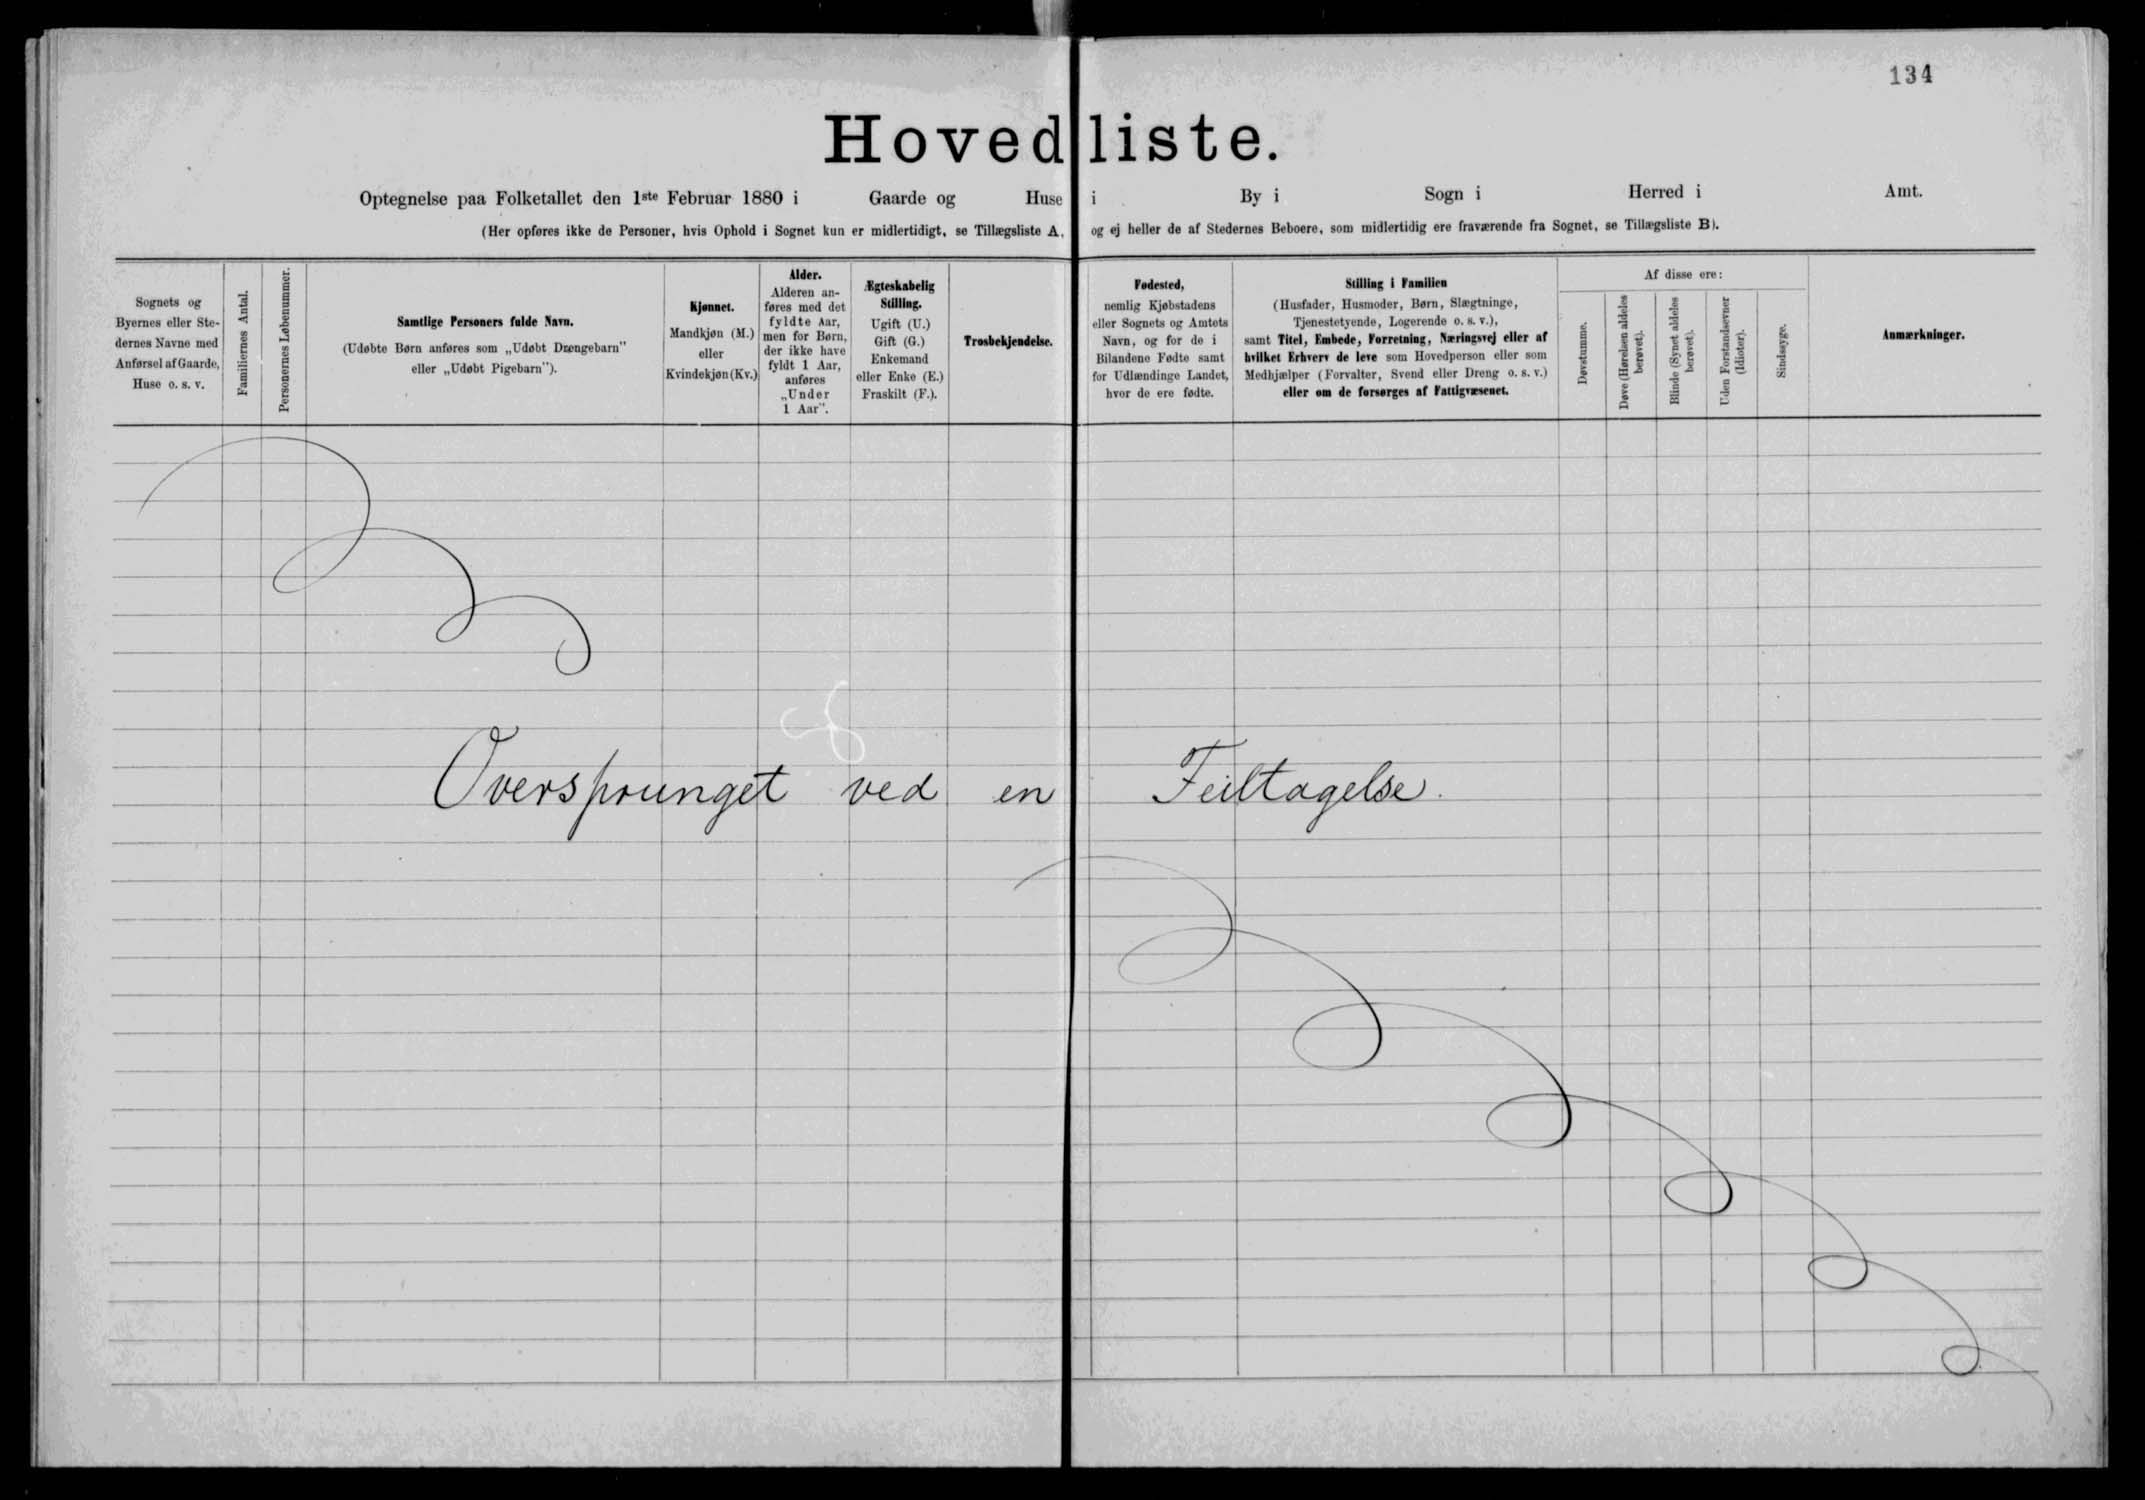 134
Hovedliste.
Optegnelse paa Folketallet den 1ste Februar 1880 i Gaarde og Huse i By i Sogn i Herred i Amt.
(Her opføres ikke de Personer, hvis Ophold i Sognet kun er midlertidigt, se Tillægsliste A, og ej heller de af Stedernes Beboere, som midlertidig ere fraværende fra Sognet, se Tillægsliste B).
Sognets og
Byernes eller Ste-
dernes Navne med
Anførsel af Gaarde,
Huse o. s. v.
Familiernes Antal.
Personernes Løbenummer.
Samtlige Personers fulde Navn.
(Udøbte Børn anføres som „Udøbt Drengebarn"
eller „Udøbt Pigebarn").
Kjønnet.
Mandkjøn (M.)
eller
Kvindekjøn (Kv.)
Alder.
Alderen an-
føres med det
fyldte Aar,
men for Børn,
der ikke have
fyldt 1 Aar,
anføres
„Under
1 Aar".
Ægteskabelig
Stilling.
Ugift (U.)
Gift (G.)
Enkemand
eller Enke (E.)
Fraskilt (F.).
Trosbekjendelse.
Fødested,
nemlig Kjøbstadens
eller Sognets og Amtets
Navn, og for de i
Bilandene Fødte samt
for Udlændinge Landet,
hvor de ere fødte.
Stilling i Familien
(Husfader, Husmoder, Børn, Slægtninge,
Tjenestetyende, Logerende o. s. v.),
samt Titel, Embede, Forretning, Næringsvej eller af
hvilket Erhverv de leve som Hovedperson eller som
Medhjælper (Forvalter, Svend eller Dreng o. s. v.)
eller om de forsørges af Fattigvæsenet.
Af disse ere:
Døvstumme.
Døve (Hørelsen aldeles
berøvet).
Blinde (Synet aldeles
berøvet).
Uden Forstandsevner
(Idioter).
Sindssyge.
Anmærkninger.
Oversprunget ved en Feiltagelse.